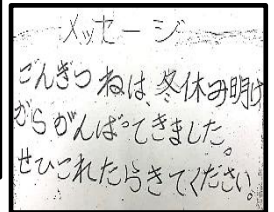 メッセージ
ごんぎつねは、冬休み明け
からがんばってきました。
ぜひこれたらきてください。